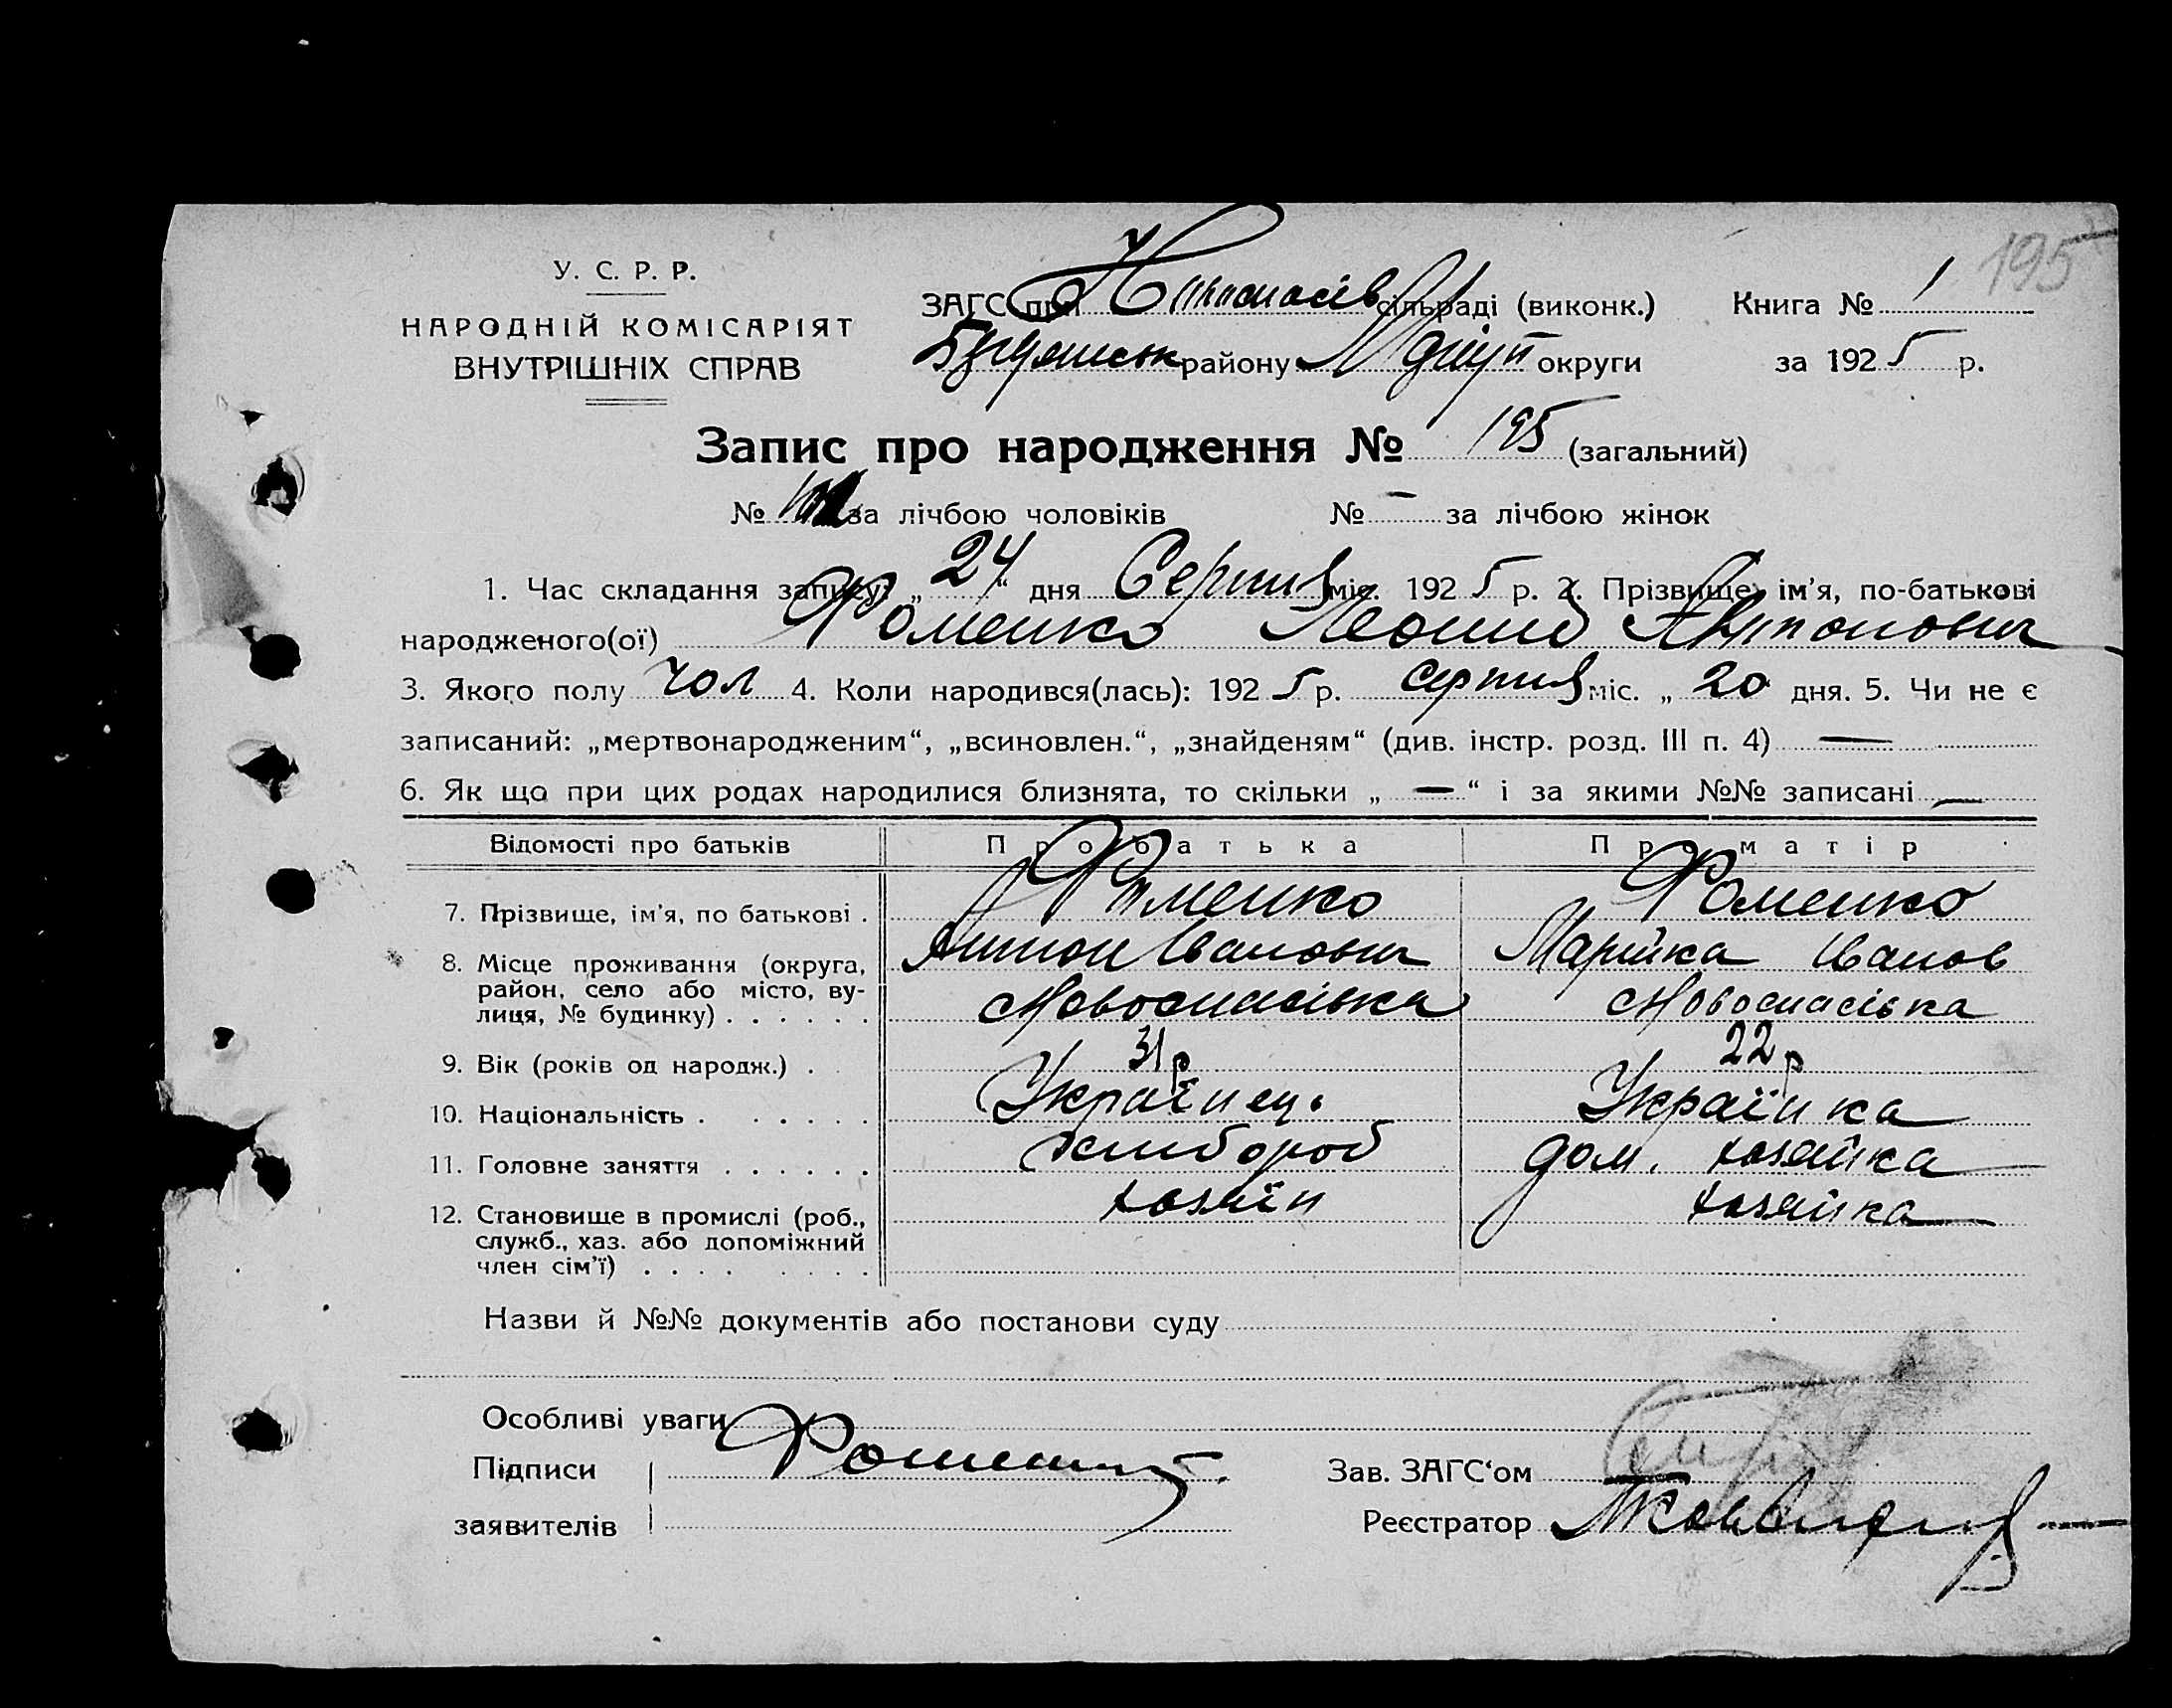 195
У. С. Р. Р.
НАРОДНІЙ КОМІСАРІЯТ
ВНУТРІШНІХ СПРАВ
ЗАГС при сільраді (виконк.) Книга № 1
району округи за 1925 р.
Запис про народження № 195 (загальний)
№ за лічбою чоловіків № — за лічбою жінок
1. Час складання запису: „24“ дня Серпня міс. 1925 р. 2. Прізвище, ім'я, по-батькові
народженого(ої) Фоменко Леонид Антонович
3. Якого полу чол 4. Коли народився(лась): 1925 р. серпня міс. „20 дня. 5. Чи не є
записаний: „мертвонародженим“, „всиновлен.“, „знайденям“ (див. інстр. розд. III п. 4) —
6. Як що при цих родах народилися близнята, то скільки „—“ і за якими №№ записані —
Відомості про батьків Про батька Про матір
7. Прізвище, ім'я, по батькові . Фоменко Фоменко
Антон Іванович Марийка Іванов
8. Місце проживання (округа, район, село або місто, вулиця, № будинку) . . . . . . Новоспасівка Новоспасівка
9. Вік (років од народж.) . 31 р 22 р
10. Національність . . . . . . Українец. Українка
11. Головне заняття . . . . . . хлибороб дом. хозяйка
12. Становище в промислі (роб., служб., хаз. або допоміжний член сім'ї) . . . . . . . . хозяїн хозяйка
Назви й №№ документів або постанови суду
Особливі уваги
Підписи Фоменко
заявителів
Зав. ЗАГС‘ом
Реєстратор